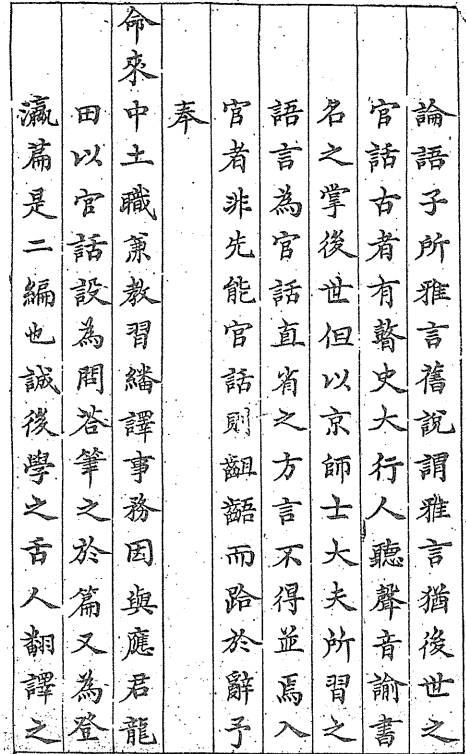 論語子所雅言舊說謂雅言猶後世之
官話古者有瞽史大行人聽聲音諭書
名之掌後世但以京師士大夫所習之
語言為官話直省之方言不得並焉入
官者非先能官話則齟齬而跲於辭予
奉
命來中土職兼教習繙譯事務因與應君龍
田以官話設為問荅筆之於篇又為登
瀛篇是二編也誠後學之舌人翻譯之